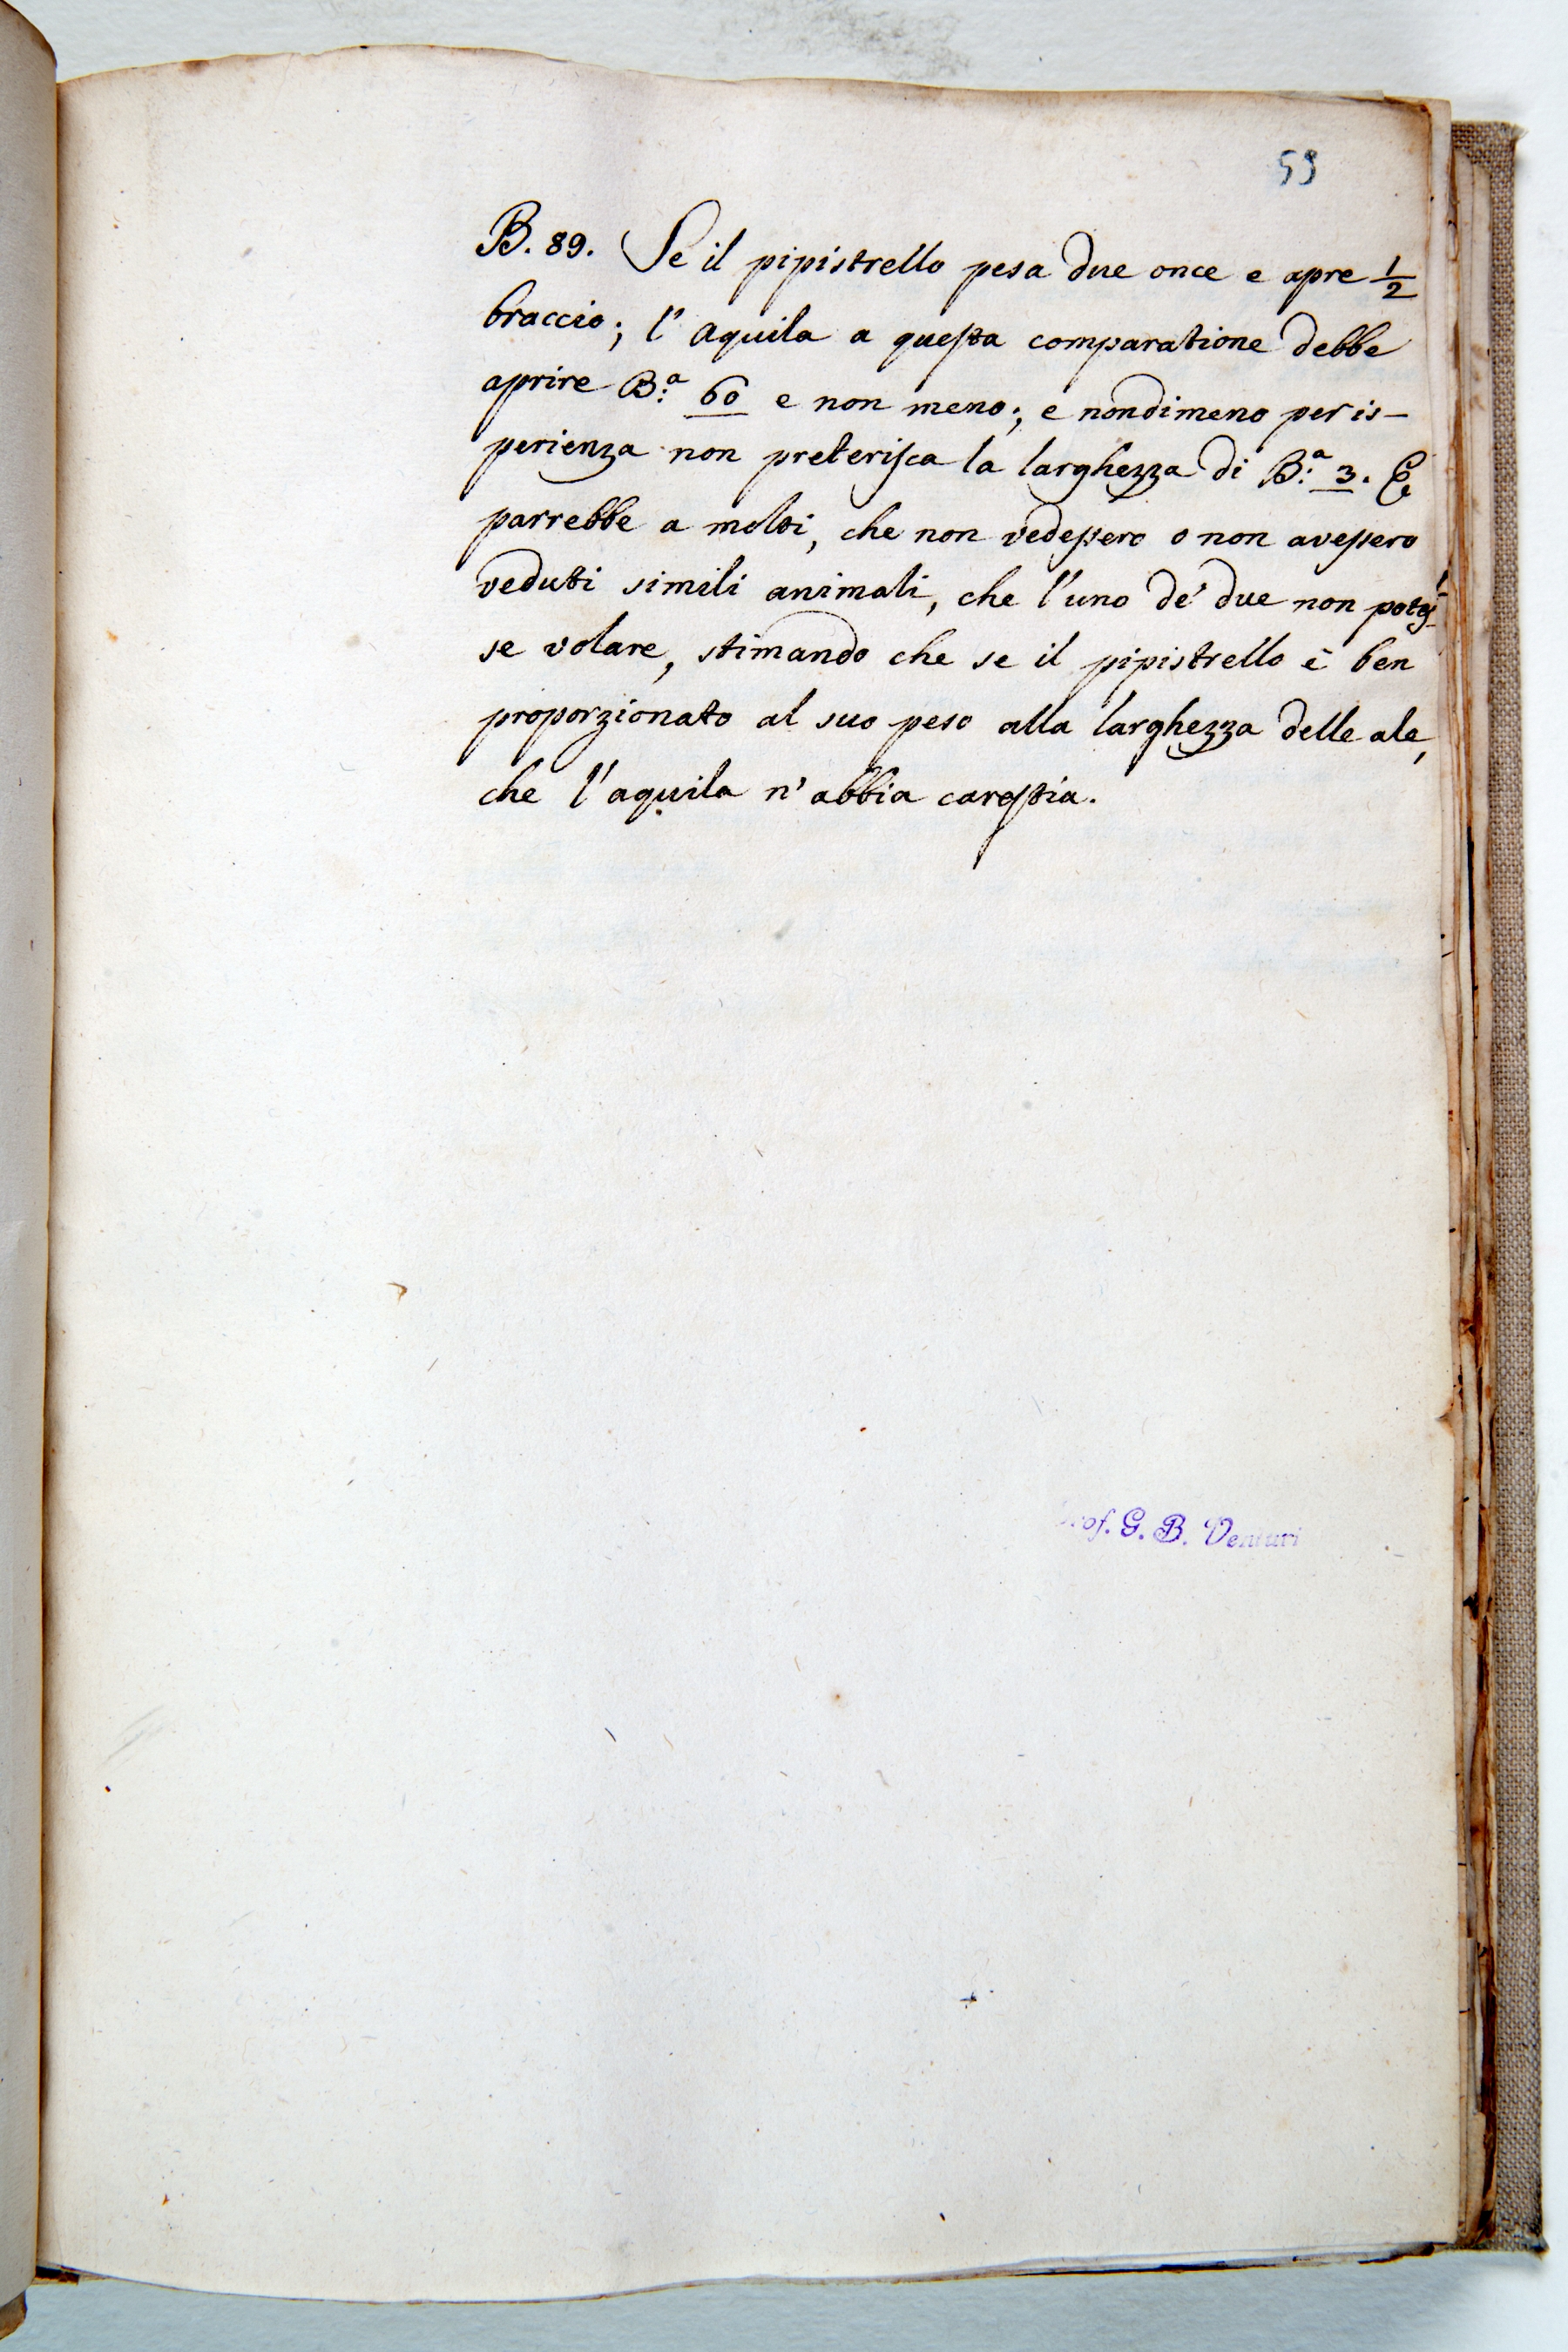 59
B. 89. Se il pipistrello pesa due once e apre 1/2
braccio; l'aquila a questa comparatione debbe
aprire B.ª 60 e non meno; e nondimeno per is-
perienza non preterisca la larghezza di B.ª 3. E
parrebbe a molti, che non vedessero o non avessero
veduti simili animali, che l'uno de' due non potes-
se volare, stimando che se il pipistrello è ben
proporzionato al suo peso alla larghezza delle ale,
che l'aquila n'abbia carestia.
Prof. G. B. Venturi